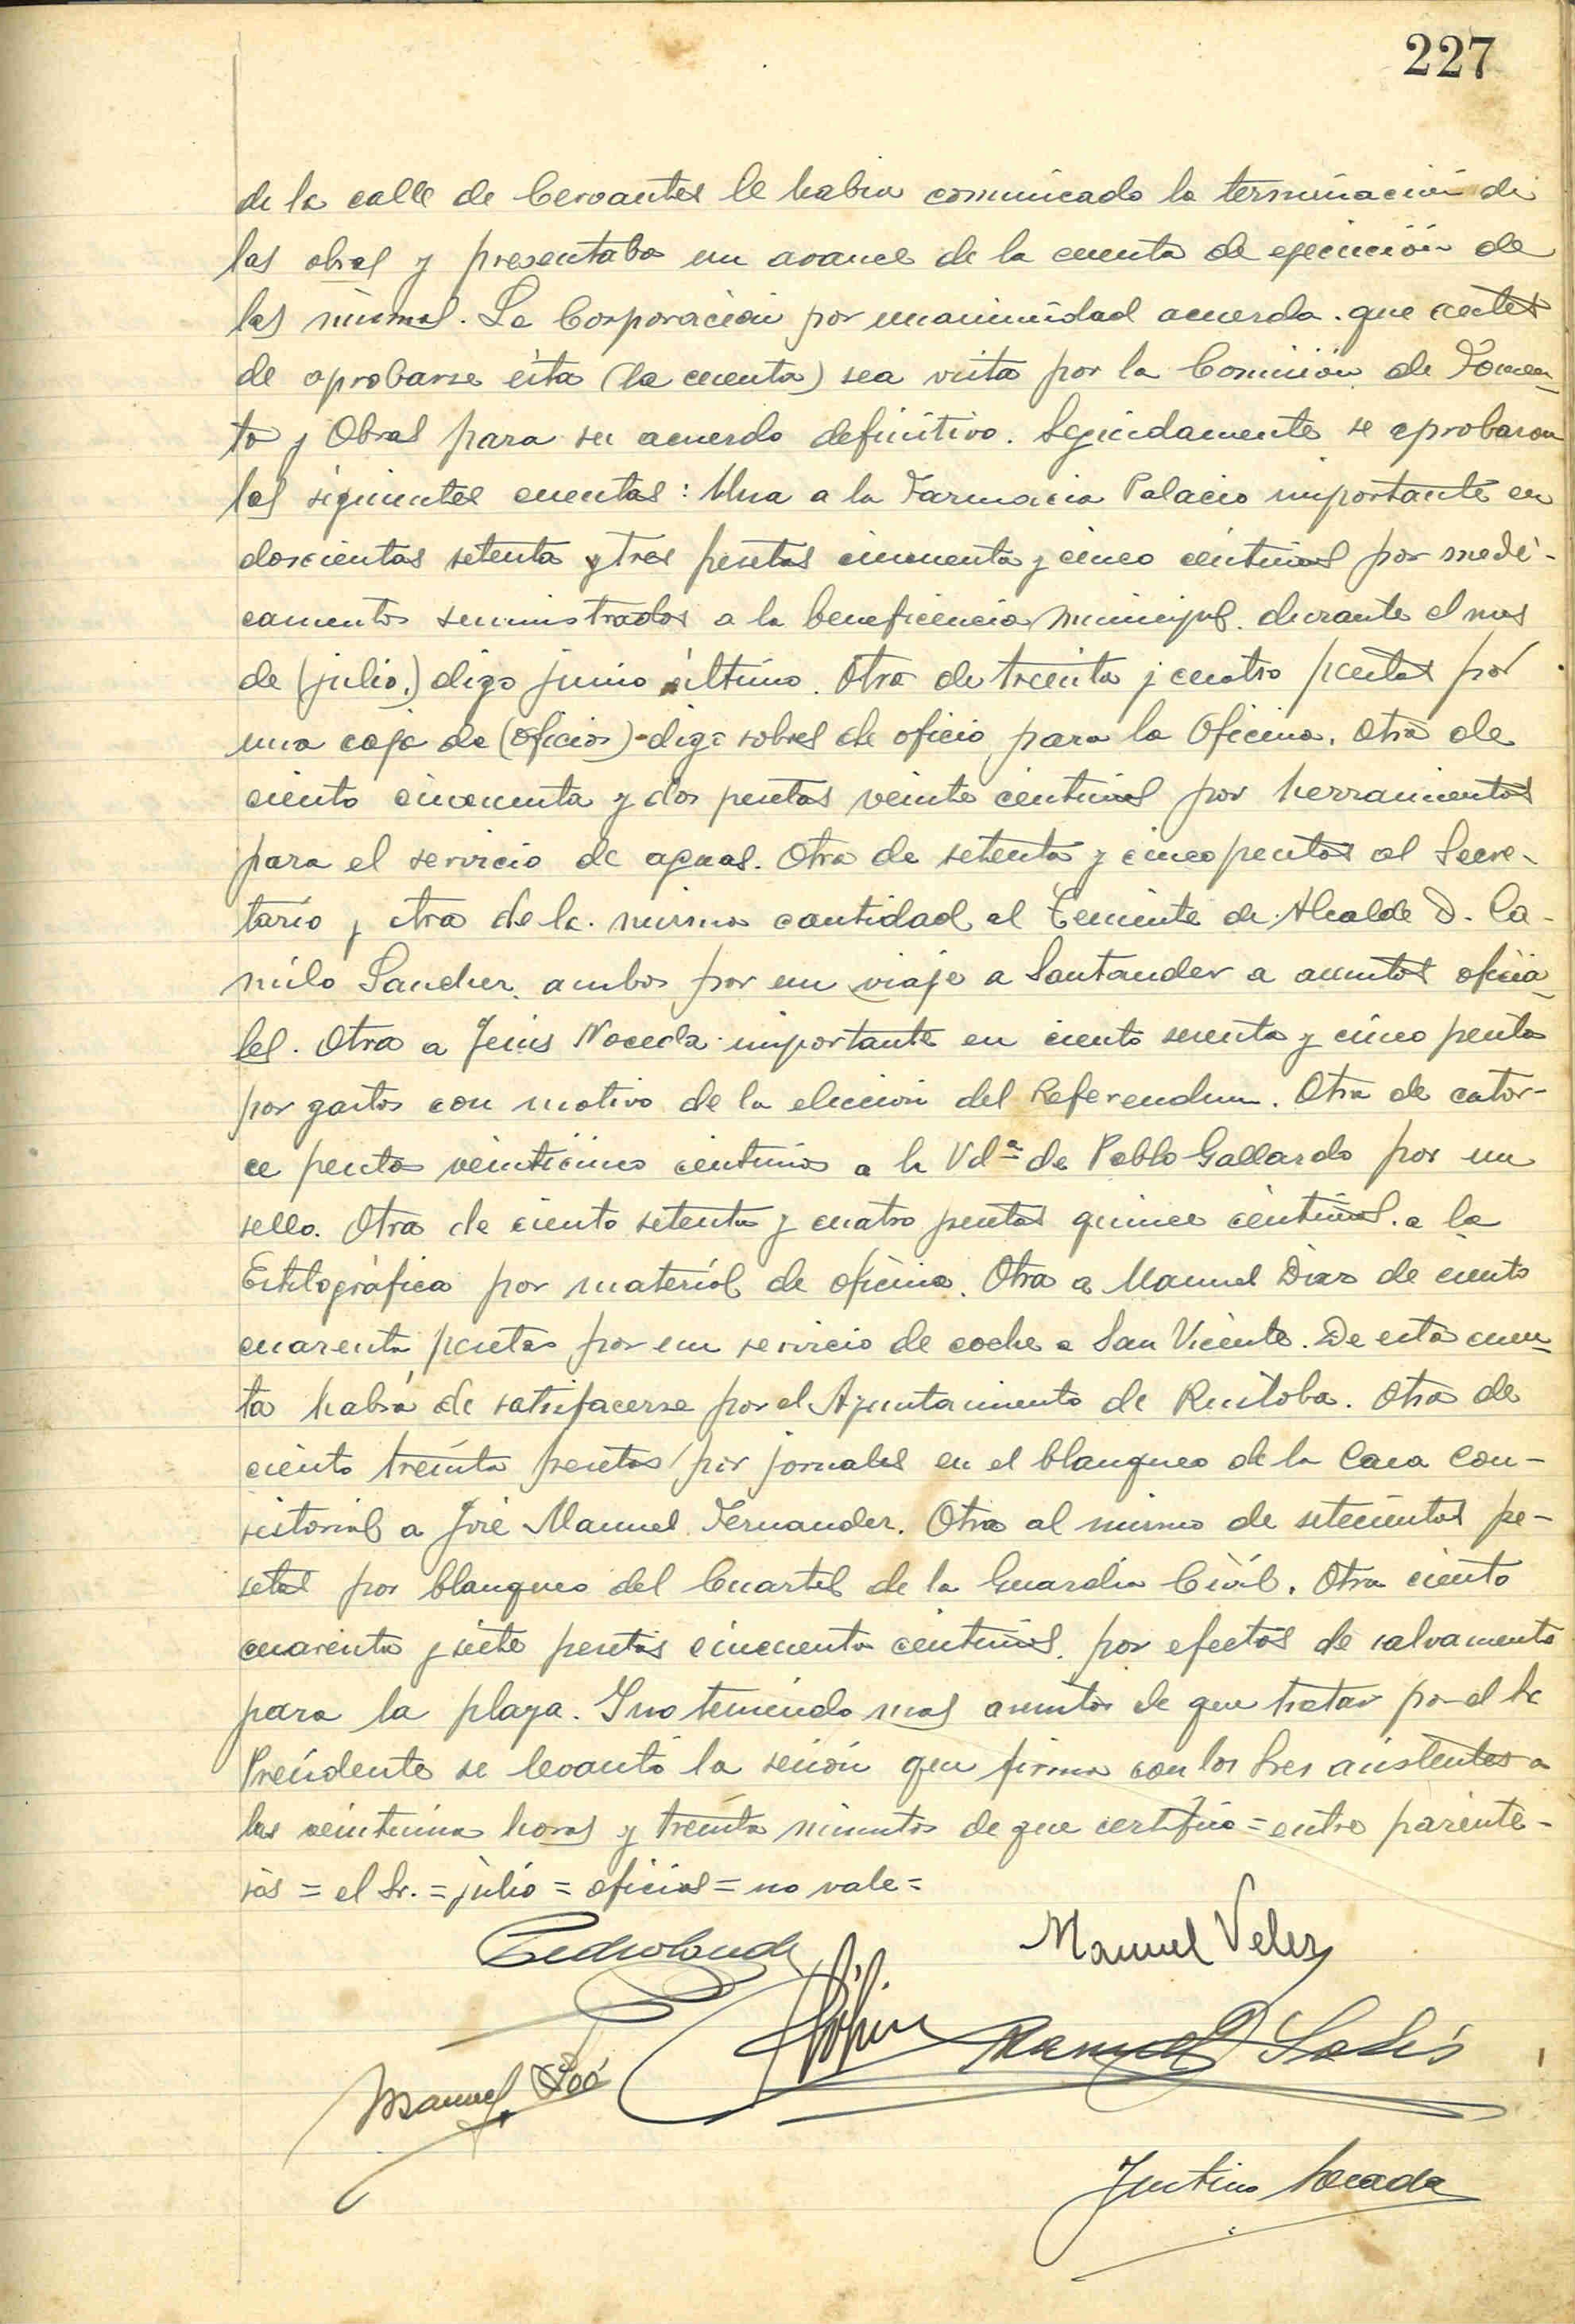 227
de la calle de Cervantes le habia comunicado la terminación de
las obras y presentaba un avance de la cuenta de ejecución de
las mismas. La Corporación por unanimidad acuerda que antes
de aprobarse ésta (la cuenta) sea vista por la Comisión de Fomen-
to y Obras para su acuerdo definitivo. Seguidamente se aprobaron
las siguientes cuentas: Una a la Farmacia Palacio importante en
doscientas setenta y tres pesetas cincuenta y cinco céntimos por medi-
camentos suministrados a la beneficencia municipal durante el mes
de (julio,) digo junio último. Otra de treinta y cuatro pesetas por
una caja de (oficios) digo sobres de oficio para la Oficina. Otra de
ciento cincuenta y dos pesetas veinte centimos por herramientas
para el servicio de aguas. Otra de setenta y cinco pesetas al Secre-
tario y otra de la misma cantidad al Teniente de Alcalde D. Ca-
milo Sanchez ambos por un viaje a Santander a asuntos oficia-
les. Otra a Jesús Noceda importante en ciento sesenta y cinco pesetas
por gastos con motivo de la elección del Referendum. Otra de cator-
ce pesetas veinticinco centimos a la Vdª de Pablo Gallardo por un
sello. Otra de ciento setenta y cuatro pesetas quince céntimos a la
Estilográfica por material de oficina. Otra a Manuel Diaz de ciento
cuarenta pesetas por un servicio de coche a San Vicente. De esta cuen-
ta habrá de satisfacerse por el Ayuntamiento de Ruiloba. Otra de
ciento treinta pesetas por jornales en el blanqueo de la Casa Con-
sistorial a José Manuel Fernandez. Otra al mismo de setecientas pe-
setas por blanqueo del Cuartel de la Guardia Civil. Otra ciento
cuarenta y siete pesetas cincuenta centimos por efectos de salvamento
para la playa. Y no teniendo mas asuntos de que tratar por el Sr.
Presidente se levantó la sesión que firma con los Sres asistentes a
las veintiuna horas y treinta minutos de que certifico = entre parénte-
sis = el Sr. = julio = oficios = no vale =
Manuel Velez
Manuel Solís
Manuel Póo
Justino